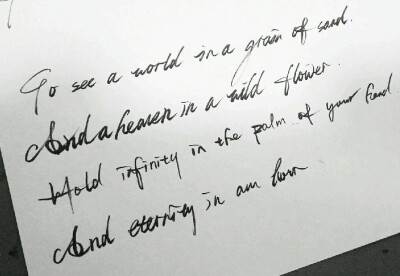 To see a world in a grain of sand.
And a heaven in a wild flower.
Hold infinity in the palm of your hand
And eternity in an hour